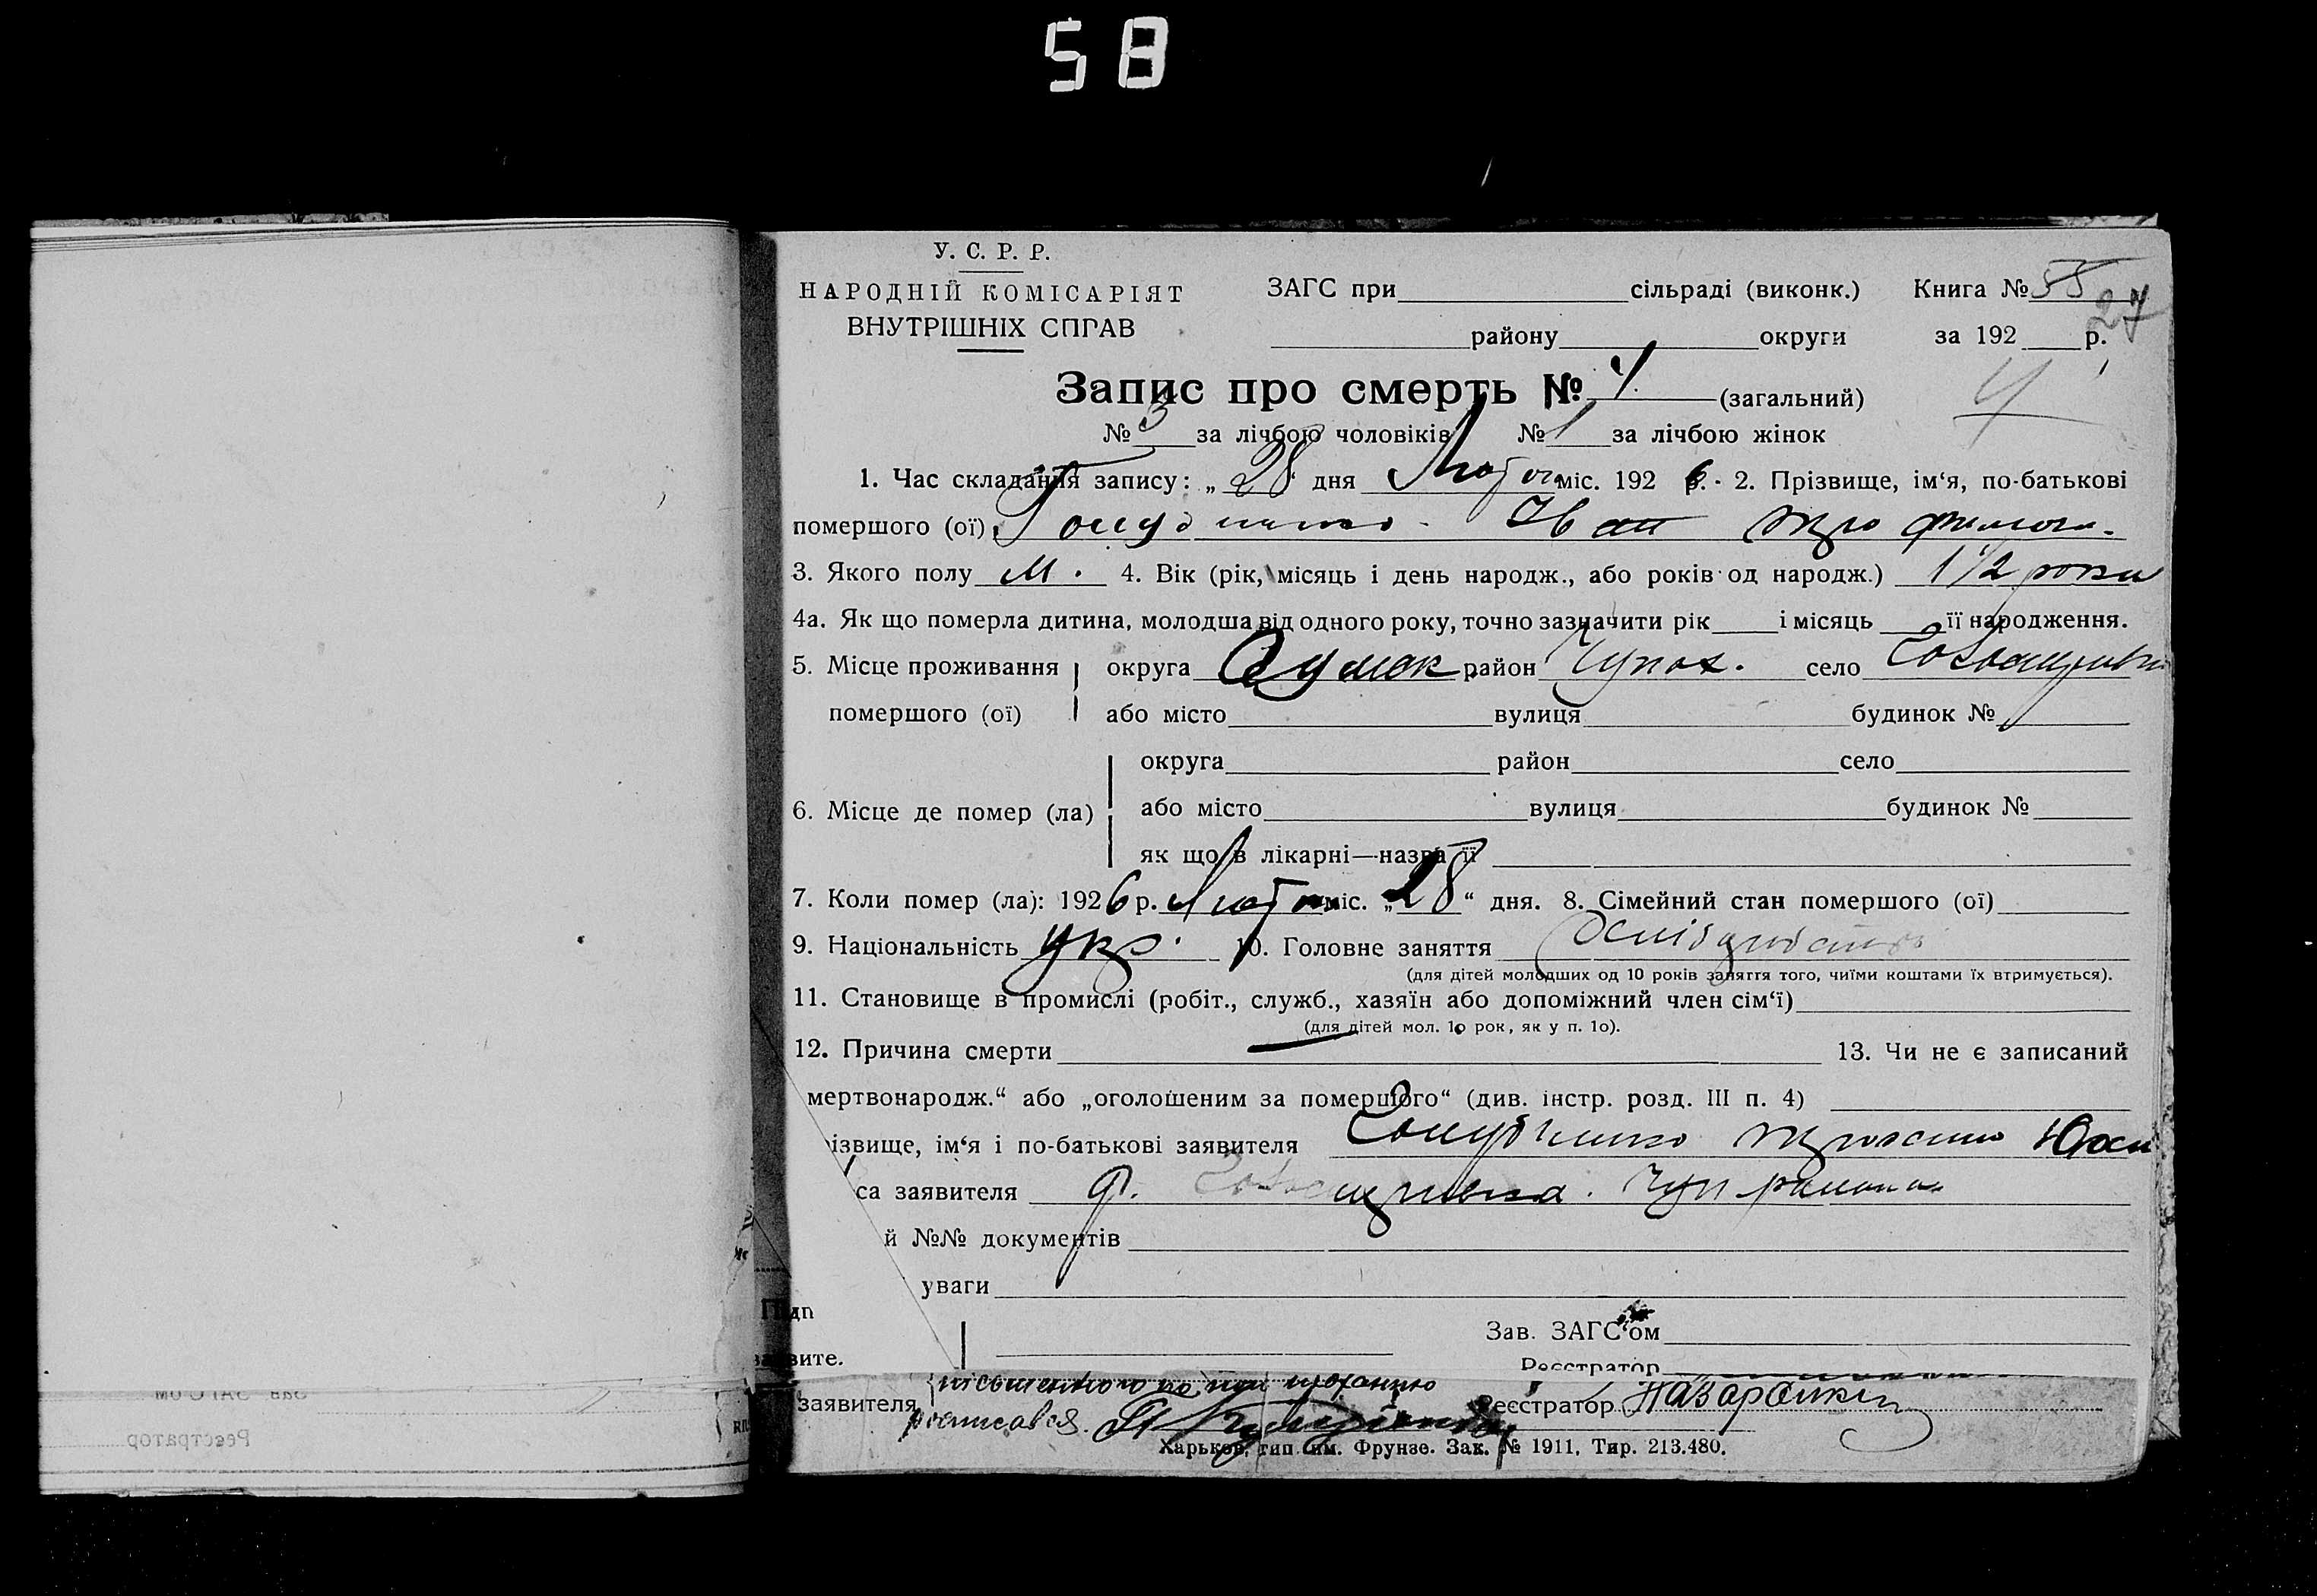 58
У. С. Р. Р.
НАРОДНІЙ КОМІСАРІЯТ
ВНУТРІШНІХ СПРАВ
ЗАГС при сільраді (виконк.) Книга № 55
27
району округи за 192 р.
Запис про смерть № 4. (загальний) 4
№ 3 за лічбою чоловіків № 1 за лічбою жінок
1. Час складання запису: „28“ дня Лютого міс. 192 6 р. 2. Прізвище, ім‘я, по-батькові
помершого (ої) Иван Трофимов.
3. Якого полу М. 4. Вік (рік, місяць і день народж., або років од народж.) 1 1/2 роки
4а. Як що померла дитина, молодша від одного року, точно зазначити рік і місяць її народження.
5. Місце проживання округа Сумск район Чупах. село
помершого (ої) або місто вулиця будинок №
округа район село
6. Місце де помер (ла) або місто вулиця будинок №
як що в лікарні—назва її
7. Коли помер (ла): 1926 р. Лютого міс. „28“ дня. 8. Сімейний стан помершого (ої)
9. Національність укр. 10. Головне заняття
(для дітей молодших од 10 років заняття того, чиїми коштами їх втримується).
11. Становище в промислі (робіт., служб., хазяїн або допоміжний член сім‘ї)
(для дітей мол. 1о рок, як у п. 1о).
12. Причина смерти — 13. Чи не є записаний
мертвонародж.“ або „оголошеним за помершого“ (див. інстр. розд. III п. 4)
ізвище, ім‘я і по-батькові заявителя
са заявителя Чуп района
й №№ документів
уваги
Підп
Зав. ЗАГС‘ом
заявите.
Реєстратор
заявителя
росписався.
Реєстратор Назаренко
Харьков, тип. им. Фрунзе. Зак. № 1911. Тир. 213.480.
Зав ЗАГС'ом
Реєстратор